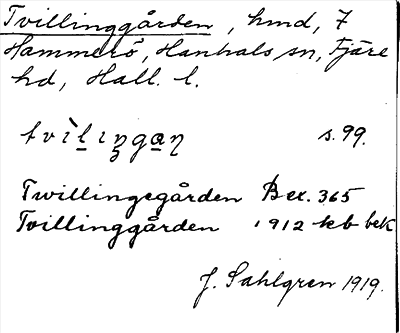 Tvillinggården, hmd, 7
Hammerö, Hanhals sn, Fjäre
hd, Hall. l.
tvìlıŋgaɳ s. 99.
Twillingegården Bex. 365
Tvillinggården 1912 kb bek
J. Sahlgren 1919.